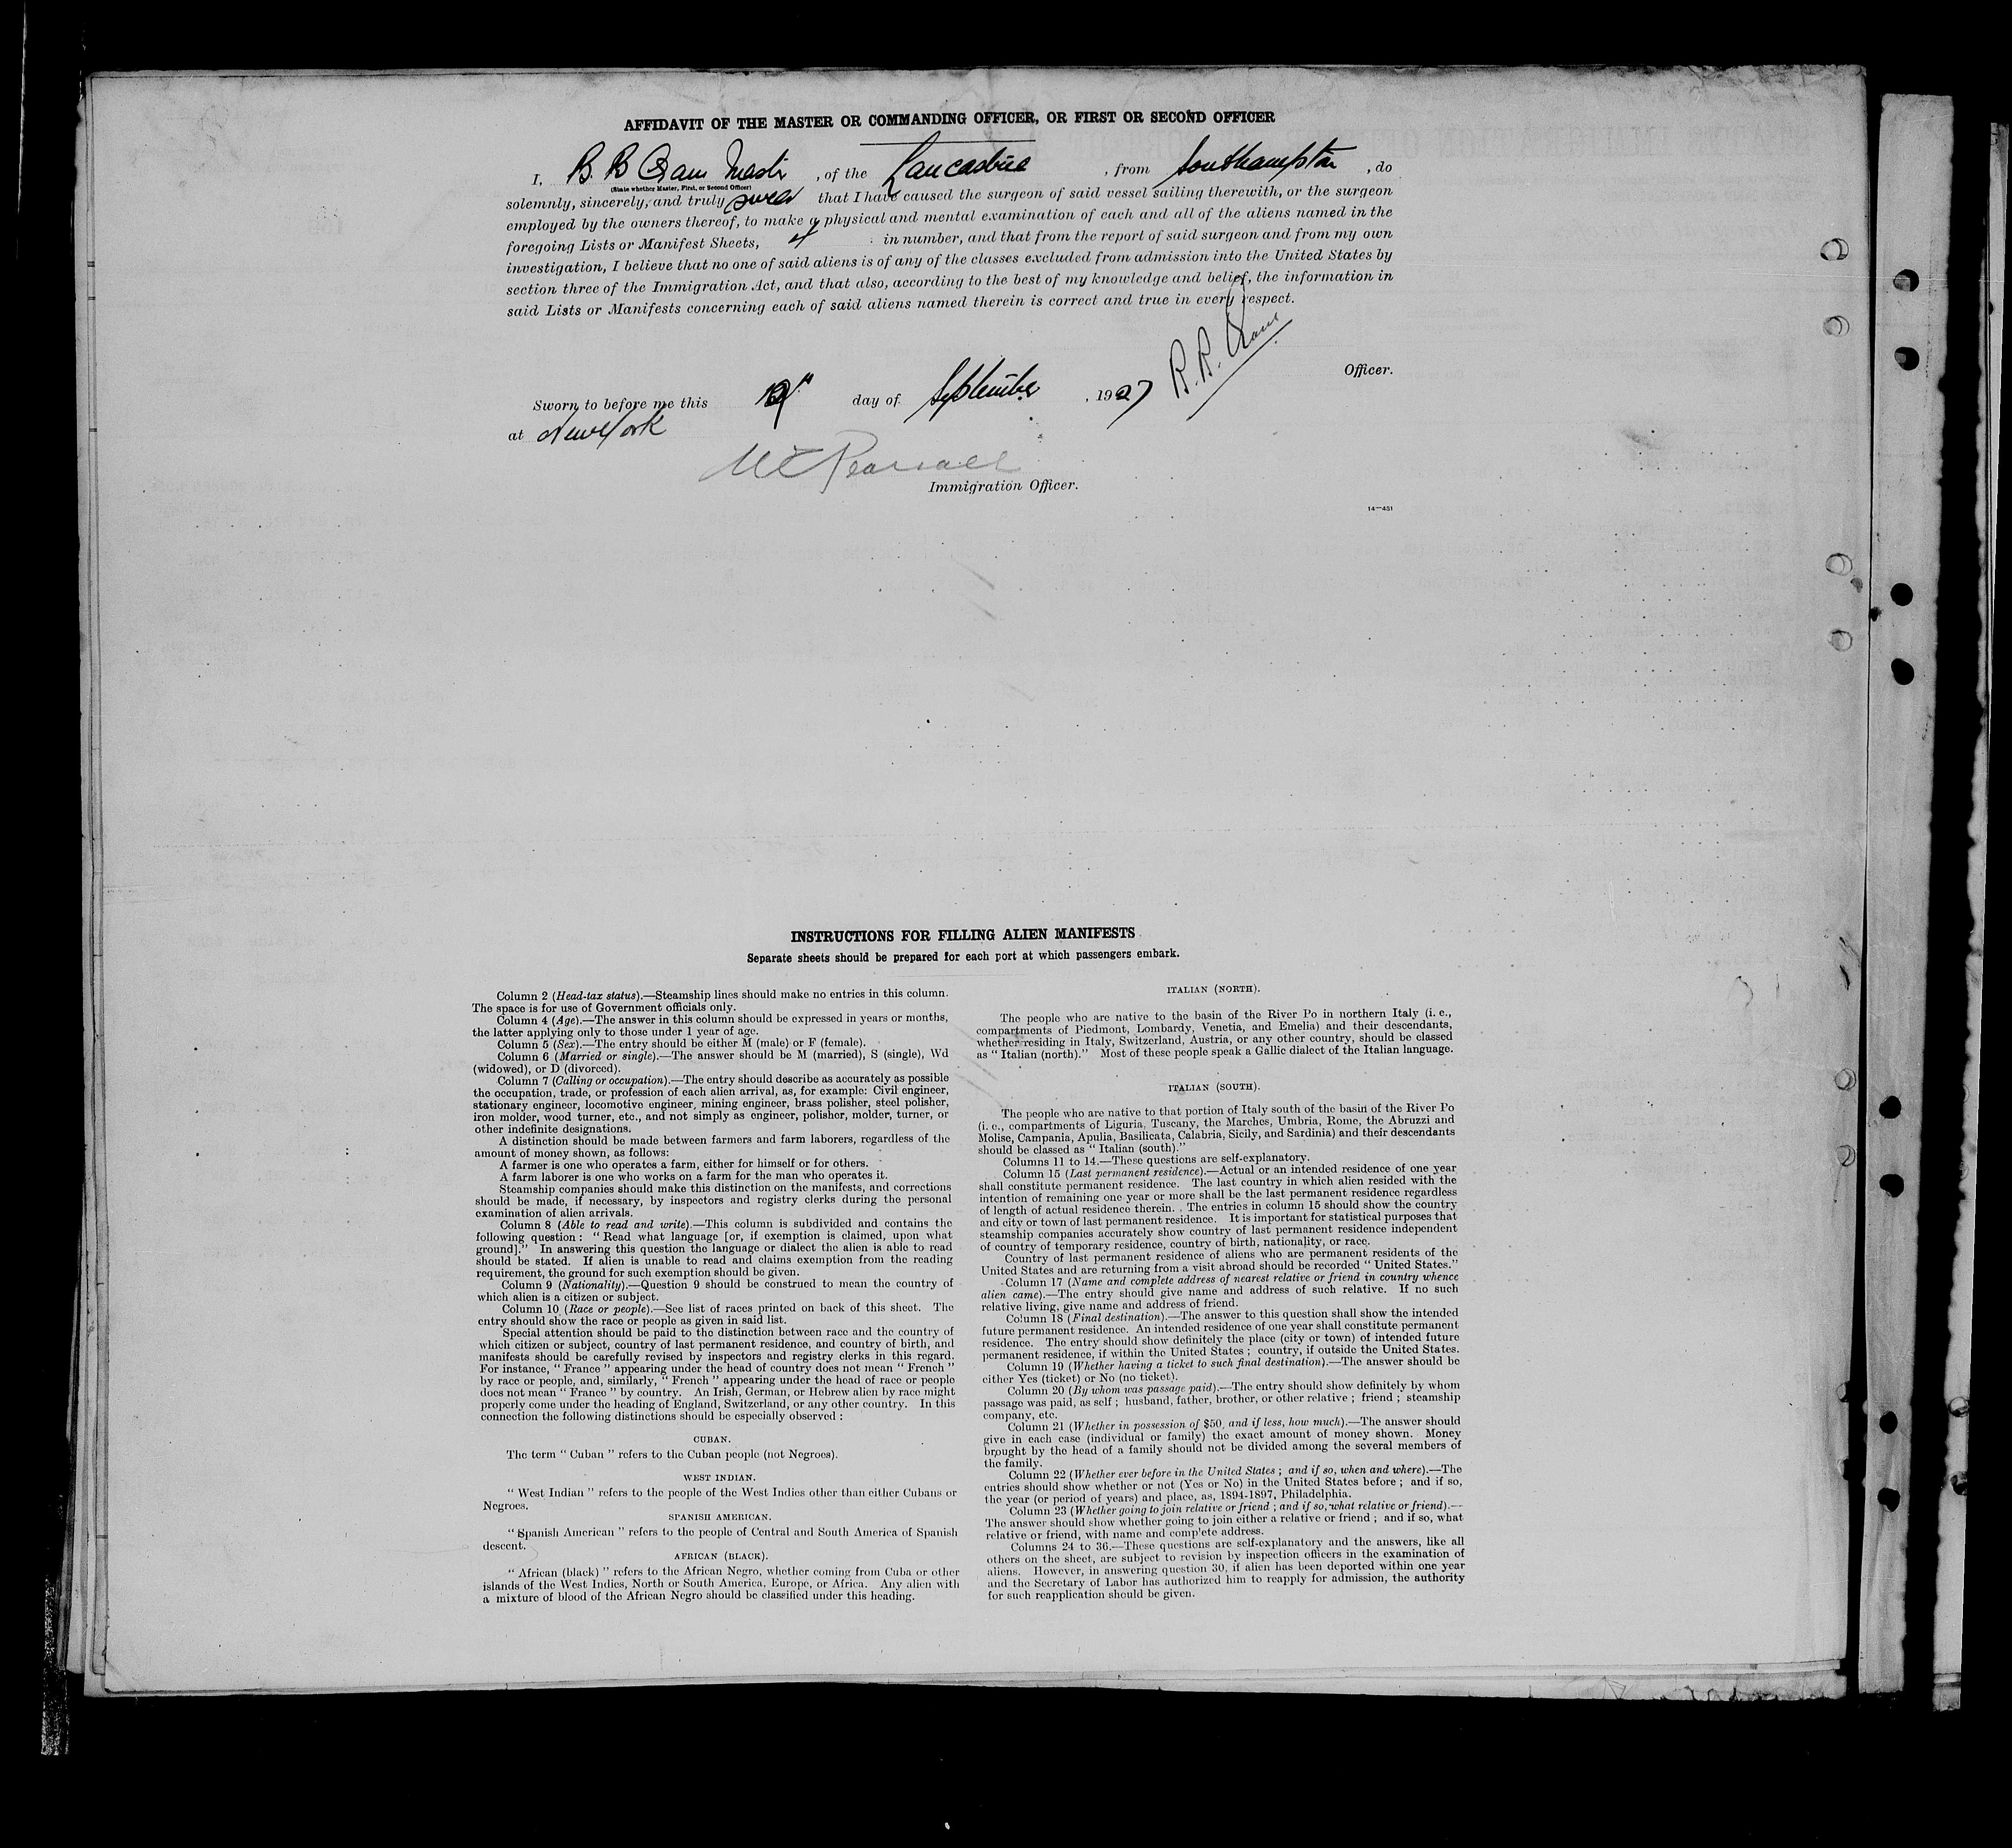 AFFIDAVIT OF THE MASTER OR COMMANDING OFFICER, OR FIRST OR SECOND OFFICER
I, B. B , of the Lancastria , from Southampton , do
(State whether Master, First, or Second Officer)
solemnly, sincerely, and truly swear that I have caused the surgeon of said vessel sailing therewith, or the surgeon
employed by the owners thereof, to make a physical and mental examination of each and all of the aliens named in the
foregoing Lists or Manifest Sheets, 4 in number, and that from the report of said surgeon and from my own
investigation, I believe that no one of said aliens is of any of the classes excluded from admission into the United States by
section three of the Immigration Act, and that also, according to the best of my knowledge and belief, the information in
said Lists or Manifests concerning each of said aliens named therein is correct and true in every respect.
Officer.
Sworn to before me this day of September , 1927
at New York
Immigration Officer.
14—431
INSTRUCTIONS FOR FILLING ALIEN MANIFESTS
Separate sheets should be prepared for each port at which passengers embark.
Column 2 (Head-tax status).—Steamship lines should make no entries in this column.
The space is for use of Government officials only.
Column 4 (Age).—The answer in this column should be expressed in years or months,
the latter applying only to those under 1 year of age.
Column 5 (Sex).—The entry should be either M (male) or F (female).
Column 6 (Married or single).—The answer should be M (married), S (single), Wd
(widowed), or D (divorced).
Column 7 (Calling or occupation).—The entry should describe as accurately as possible
the occupation, trade, or profession of each alien arrival, as, for example: Civil engineer,
stationary engineer, locomotive engineer, mining engineer, brass polisher, steel polisher,
iron molder, wood turner, etc., and not simply as engineer, polisher, molder, turner, or
other indefinite designations.
A distinction should be made between farmers and farm laborers, regardless of the
amount of money shown, as follows:
A farmer is one who operates a farm, either for himself or for others.
A farm laborer is one who works on a farm for the man who operates it.
Steamship companies should make this distinction on the manifests, and corrections
should be made, if necessary, by inspectors and registry clerks during the personal
examination of alien arrivals.
Column 8 (Able to read and write).—This column is subdivided and contains the
following question: “Read what language [or, if exemption is claimed, upon what
ground].” In answering this question the language or dialect the alien is able to read
should be stated. If alien is unable to read and claims exemption from the reading
requirement, the ground for such exemption should be given.
Column 9 (Nationality).—Question 9 should be construed to mean the country of
which alien is a citizen or subject.
Column 10 (Race or people).—See list of races printed on back of this sheet. The
entry should show the race or people as given in said list.
Special attention should be paid to the distinction between race and the country of
which citizen or subject, country of last permanent residence, and country of birth, and
manifests should be carefully revised by inspectors and registry clerks in this regard.
For instance, “France” appearing under the head of country does not mean “French”
by race or people, and, similarly, “French” appearing under the head of race or people
does not mean “France” by country. An Irish, German, or Hebrew alien by race might
properly come under the heading of England, Switzerland, or any other country. In this
connection the following distinctions should be especially observed:
CUBAN.
The term “Cuban” refers to the Cuban people (not Negroes).
WEST INDIAN.
“West Indian” refers to the people of the West Indies other than either Cubans or
Negroes.
SPANISH AMERICAN.
“Spanish American” refers to the people of Central and South America of Spanish
descent.
AFRICAN (BLACK).
“African (black)” refers to the African Negro, whether coming from Cuba or other
islands of the West Indies, North or South America, Europe, or Africa. Any alien with
a mixture of blood of the African Negro should be classified under this heading.
ITALIAN (NORTH).
The people who are native to the basin of the River Po in northern Italy (i. e.,
compartments of Piedmont, Lombardy, Venetia, and Emelia) and their descendants,
whether residing in Italy, Switzerland, Austria, or any other country, should be classed
as “Italian (north).” Most of these people speak a Gallic dialect of the Italian language.
ITALIAN (SOUTH).
The people who are native to that portion of Italy south of the basin of the River Po
(i. e., compartments of Liguria, Tuscany, the Marches, Umbria, Rome, the Abruzzi and
Molise, Campania, Apulia, Basilicata, Calabria, Sicily, and Sardinia) and their descendants
should be classed as “Italian (south).”
Columns 11 to 14.—These questions are self-explanatory.
Column 15 (Last permanent residence).—Actual or an intended residence of one year
shall constitute permanent residence. The last country in which alien resided with the
intention of remaining one year or more shall be the last permanent residence regardless
of length of actual residence therein. The entries in column 15 should show the country
and city or town of last permanent residence. It is important for statistical purposes that
steamship companies accurately show country of last permanent residence independent
of country of temporary residence, country of birth, nationality, or race.
Country of last permanent residence of aliens who are permanent residents of the
United States and are returning from a visit abroad should be recorded “United States.”
Column 17 (Name and complete address of nearest relative or friend in country whence
alien came).—The entry should give name and address of such relative. If no such
relative living, give name and address of friend.
Column 18 (Final destination).—The answer to this question shall show the intended
future permanent residence. An intended residence of one year shall constitute permanent
residence. The entry should show definitely the place (city or town) of intended future
permanent residence, if within the United States; country, if outside the United States.
Column 19 (Whether having a ticket to such final destination).—The answer should be
either Yes (ticket) or No (no ticket).
Column 20 (By whom was passage paid).—The entry should show definitely by whom
passage was paid, as self; husband, father, brother, or other relative; friend; steamship
company, etc.
Column 21 (Whether in possession of $50, and if less, how much).—The answer should
give in each case (individual or family) the exact amount of money shown. Money
brought by the head of a family should not be divided among the several members of
the family.
Column 22 (Whether ever before in the United States; and if so, when and where).—The
entries should show whether or not (Yes or No) in the United States before; and if so,
the year (or period of years) and place, as, 1894-1897, Philadelphia.
Column 23 (Whether going to join relative or friend; and if so, what relative or friend).—
The answer should show whether going to join either a relative or friend; and if so, what
relative or friend, with name and complete address.
Columns 24 to 36.—These questions are self-explanatory and the answers, like all
others on the sheet, are subject to revision by inspection officers in the examination of
aliens. However, in answering question 30, if alien has been deported within one year
and the Secretary of Labor has authorized him to reapply for admission, the authority
for such reapplication should be given.